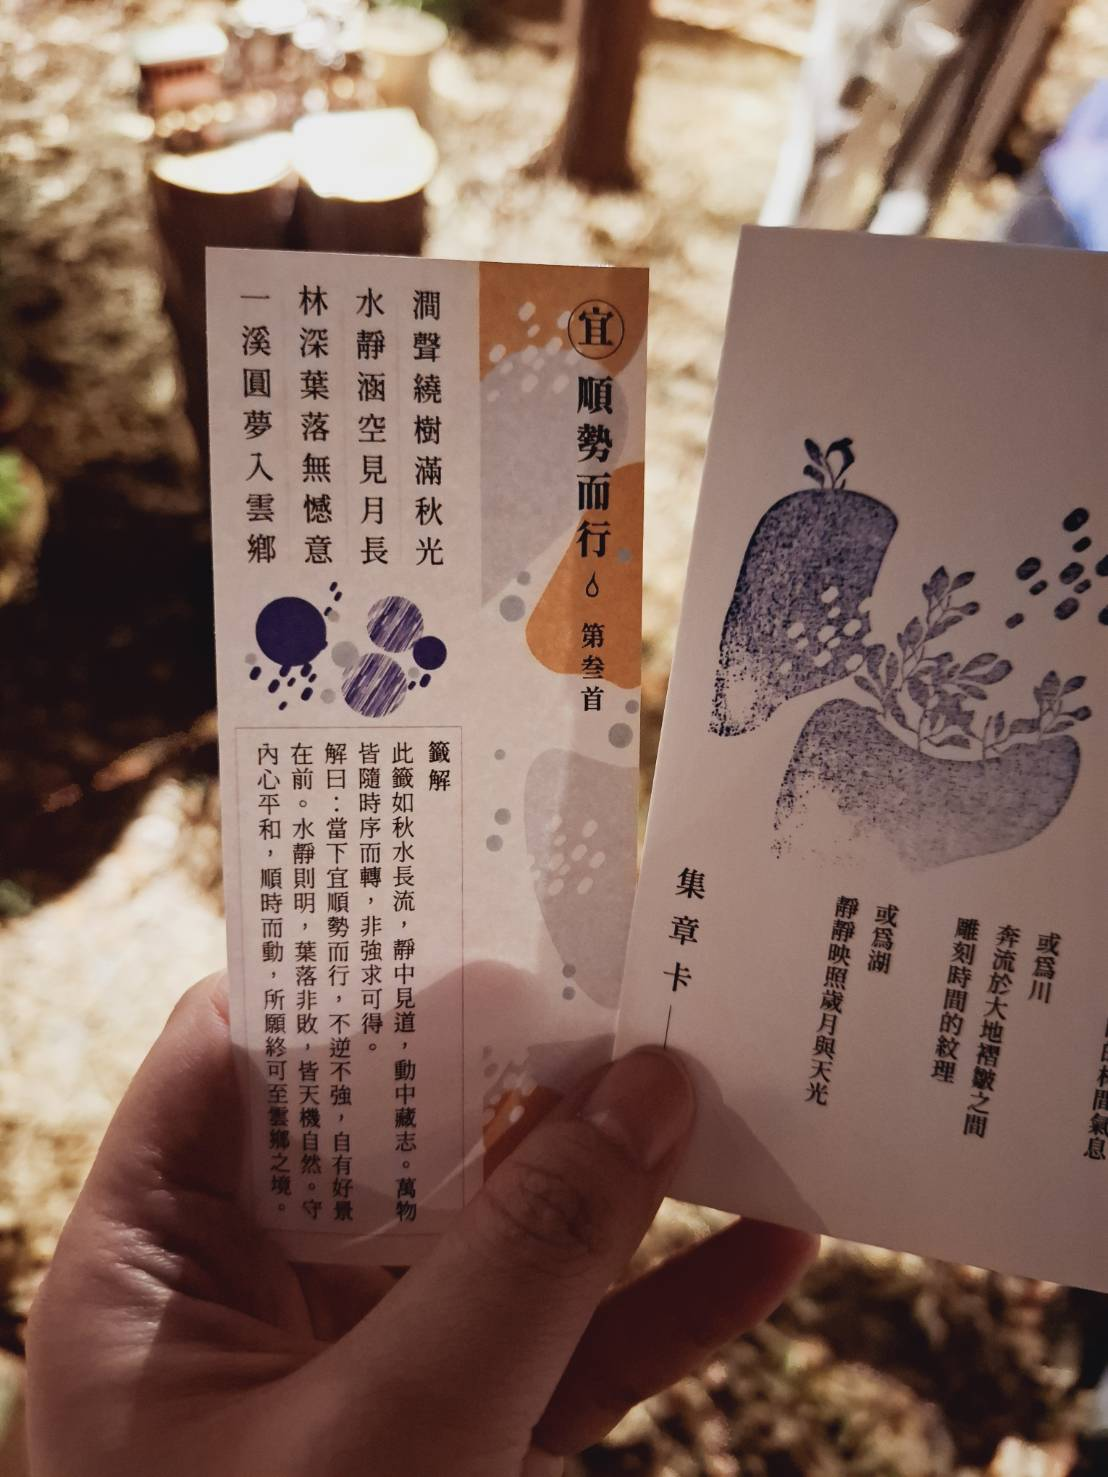 宜 順勢而行 第叄首
澗聲繞樹滿秋光
水靜涵空見月長
林深葉落無憾意
一溪圓夢入雲鄉
籤解
此籤如秋水長流，靜中見道，動中藏志。萬物
皆隨時序而轉，非強求可得。
解曰：當下宜順勢而行，不逆不強，自有好景
在前。水靜則明，葉落非敗，皆天機自然。守
內心平和，順時而動，所願終可至雲鄉之境。
或為川
奔流於大地褶皺之間
雕刻時間的紋理
或為湖
靜靜映照歲月與天光
集章卡